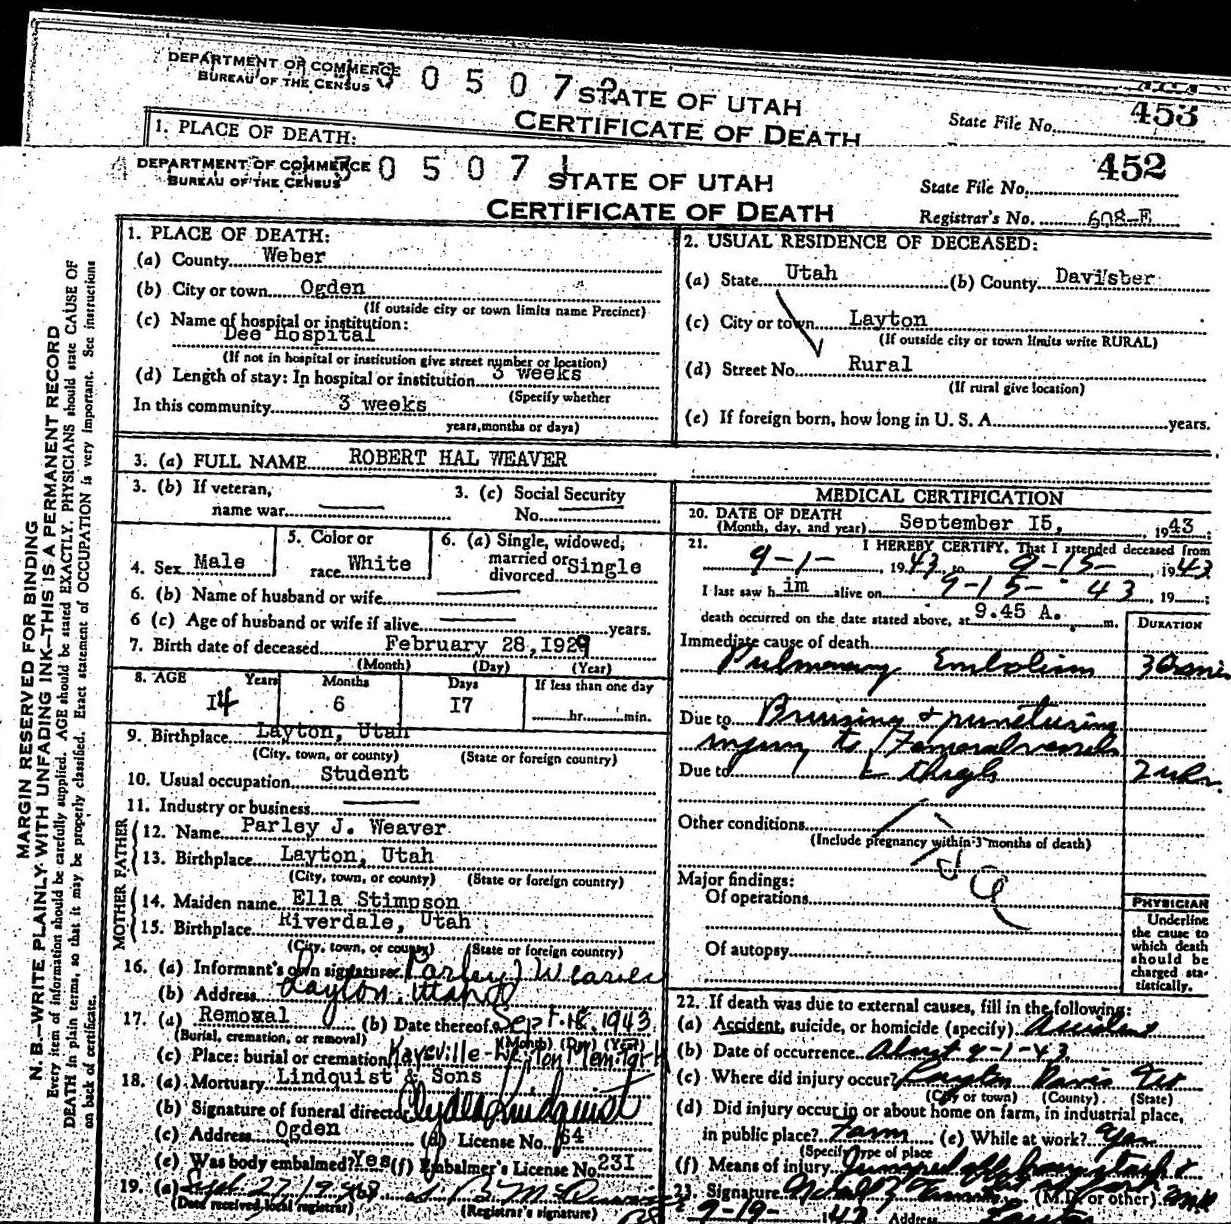 DEPARTMENT OF COMMERCE
BUREAU OF THE CENSUS
3 0 5 0 7 2
STATE OF UTAH
CERTIFICATE OF DEATH
State File No. 453
1. PLACE OF DEATH:
DEPARTMENT OF COMMERCE
BUREAU OF THE CENSUS
3 0 5 0 7 1
STATE OF UTAH
CERTIFICATE OF DEATH
State File No. 452
Registrar's No. 608-E
MARGIN RESERVED FOR BINDING
N. B.—WRITE PLAINLY WITH UNFADING INK—THIS IS A PERMANENT RECORD
Every item of information should be carefully supplied. AGE should be stated EXACTLY. PHYSICIANS should state CAUSE OF
DEATH in plain terms, so that it may be properly classified. Exact statement of OCCUPATION is very important. See instructions
on back of certificate.
1. PLACE OF DEATH:
(a) County Weber
(b) City or town Ogden
(If outside city or town limits name Precinct)
(c) Name of hospital or institution:
Dee Hospital
(If not in hospital or institution give street number or location)
(d) Length of stay: In hospital or institution 3 weeks
(Specify whether
In this community 3 weeks
years, months or days)
2. USUAL RESIDENCE OF DECEASED:
(a) State Utah (b) County Davisber
(c) City or town Layton
(If outside city or town limits write RURAL)
(d) Street No. Rural
(If rural give location)
(e) If foreign born, how long in U. S. A. years.
3. (a) FULL NAME ROBERT HAL WEAVER
3. (b) If veteran,
name war
3. (c) Social Security
No.
4. Sex Male
5. Color or
race White
6. (a) Single, widowed,
married or
divorced Single
6. (b) Name of husband or wife
6 (c) Age of husband or wife if alive years.
7. Birth date of deceased February 28, 1929
(Month) (Day) (Year)
8. AGE Years Months Days If less than one day
14 6 17 hr. min.
9. Birthplace Layton, Utah
(City, town, or county) (State or foreign country)
10. Usual occupation Student
11. Industry or business
FATHER
12. Name Parley J. Weaver
13. Birthplace Layton, Utah
(City, town, or county) (State or foreign country)
MOTHER
14. Maiden name Ella Stimpson
15. Birthplace Riverdale, Utah
(City, town, or county) (State or foreign country)
16. (a) Informant's own signature Parley J Weaver
(b) Address Layton, Utah
17. (a) Removal (b) Date thereof Sept. 18, 1943
(Burial, cremation, or removal) (Month) (Day) (Year)
(c) Place: burial or cremation Kaysville-Layton Mem. Park
18. (a) Mortuary Lindquist & Sons
(b) Signature of funeral director Clyde Lindquist
(c) Address Ogden (d) License No. 64
(e) Was body embalmed? Yes (f) Embalmer's License No. 231
19. (a) Sept 27 1943 (b)
(Date received local registrar) (Registrar's signature)
MEDICAL CERTIFICATION
20. DATE OF DEATH
(Month, day, and year) September 15, 1943
21. I HEREBY CERTIFY, That I attended deceased from
9-1- 1943, to 9-15- 1943
I last saw him alive on 9-15-43 19
death occurred on the date stated above, at 9.45 A. m.
DURATION
Immediate cause of death
Pulmonary Embolism 30 min
Due to Bruising & puncturing
injury to femoral vessels
Due to L thigh 2 wks.
Other conditions
(Include pregnancy within 3 months of death)
Major findings:
Of operations
Of autopsy
PHYSICIAN
Underline
the cause to
which death
should be
charged sta-
tistically.
22. If death was due to external causes, fill in the following:
(a) Accident, suicide, or homicide (specify) Accident
(b) Date of occurrence About 9-1-43
(c) Where did injury occur? Layton Davis
(City or town) (County) (State)
(d) Did injury occur in or about home on farm, in industrial place,
in public place? Farm (e) While at work?
(Specify type of place
(f) Means of injury Jumped off haystack
23. Signature (M.D. or other)
9-19- 1943 Address Layton